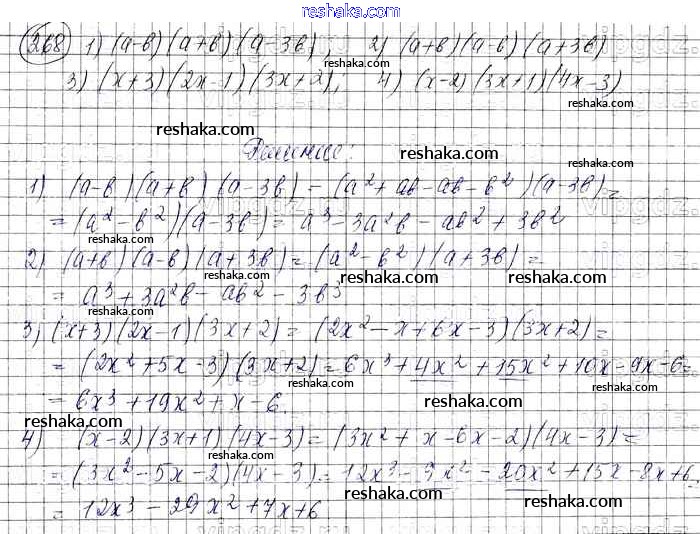 reshaka.com
268 1) (a-b)(a+b)(a-3b); 2) (a+b)(a-b)(a+3b)
3) (x+3)(2x-1)(3x+2); 4) (x-2)(3x+1)(4x-3)
reshaka.com
reshaka.com
reshaka.com
Решение:
reshaka.com
1) (a-b)(a+b)(a-3b) = (a²+ab-ab-b²)(a-3b)=
= (a²-b²)(a-3b) = a³-3a²b-ab²+3b²
reshaka.com
reshaka.com
reshaka.com
2) (a+b)(a-b)(a+3b) = (a²-b²)(a+3b) =
= a³+3a²b-ab²-3b³
reshaka.com
reshaka.com
3) (x+3)(2x-1)(3x+2) = (2x²-x+6x-3)(3x+2) =
= (2x²+5x-3)(3x+2) = 6x³+4x²+15x²+10x-9x-6=
= 6x³+19x²+x-6.
reshaka.com
reshaka.com
reshaka.com
4) (x-2)(3x+1)(4x-3) = (3x²+x-6x-2)(4x-3) =
= (3x²-5x-2)(4x-3) = 12x³-9x²-20x²+15x-8x+6=
= 12x³-29x²+7x+6
reshaka.com
reshaka.com
reshaka.com